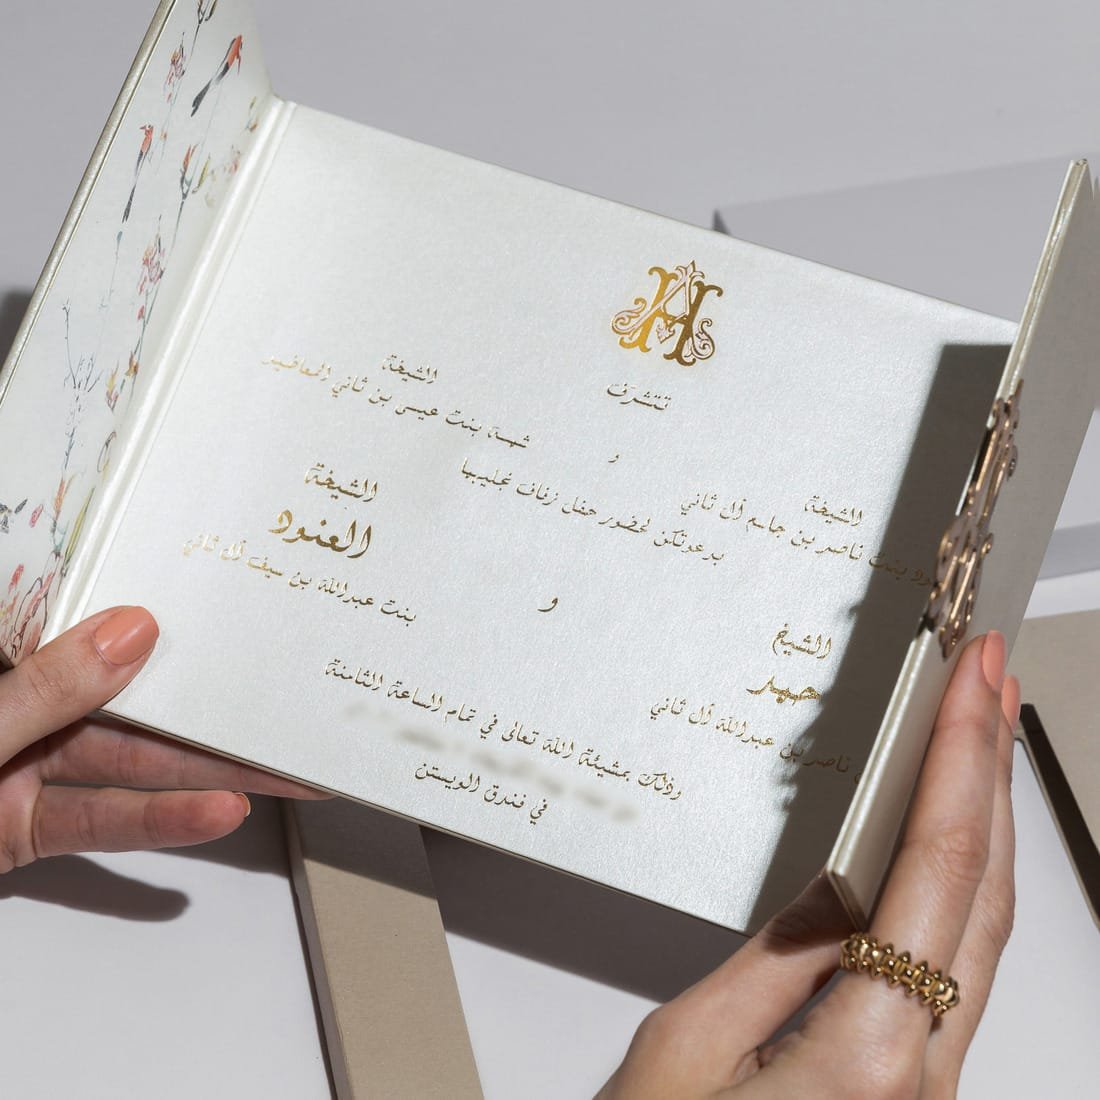 تتشرف
الشيخة
بنت ناصر بن جاسم آل ثاني
و
الشيخة
شيمة بنت عيسى بن ثاني المعاضيد
بدعوتكن لحضور حفل زفاف نجليهما
الشيخ
حمد
ناصر بن عبدالله آل ثاني
و
الشيخة
العنود
بنت عبدالله بن سيف آل ثاني
وذلك بمشيئة الله تعالى في تمام الساعة الثامنة
في فندق الويستن